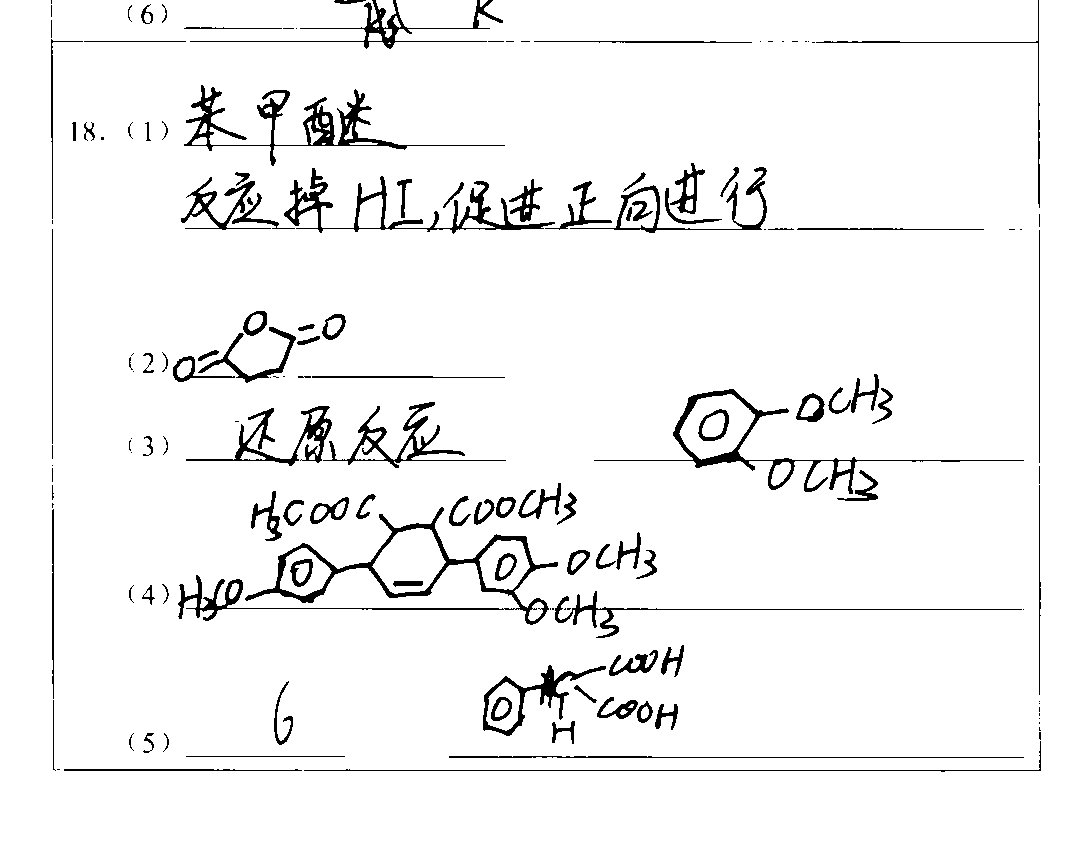 (6) K
18. (1) 苯甲醚
反应掉 HI,促进正向进行
(2) O=  O  =O
(3) 还原反应  OCH3
OCH3
H3COOC  COOCH3
OCH3
(4) H3CO  OCH3
COOH
COOH
H
(5) 6